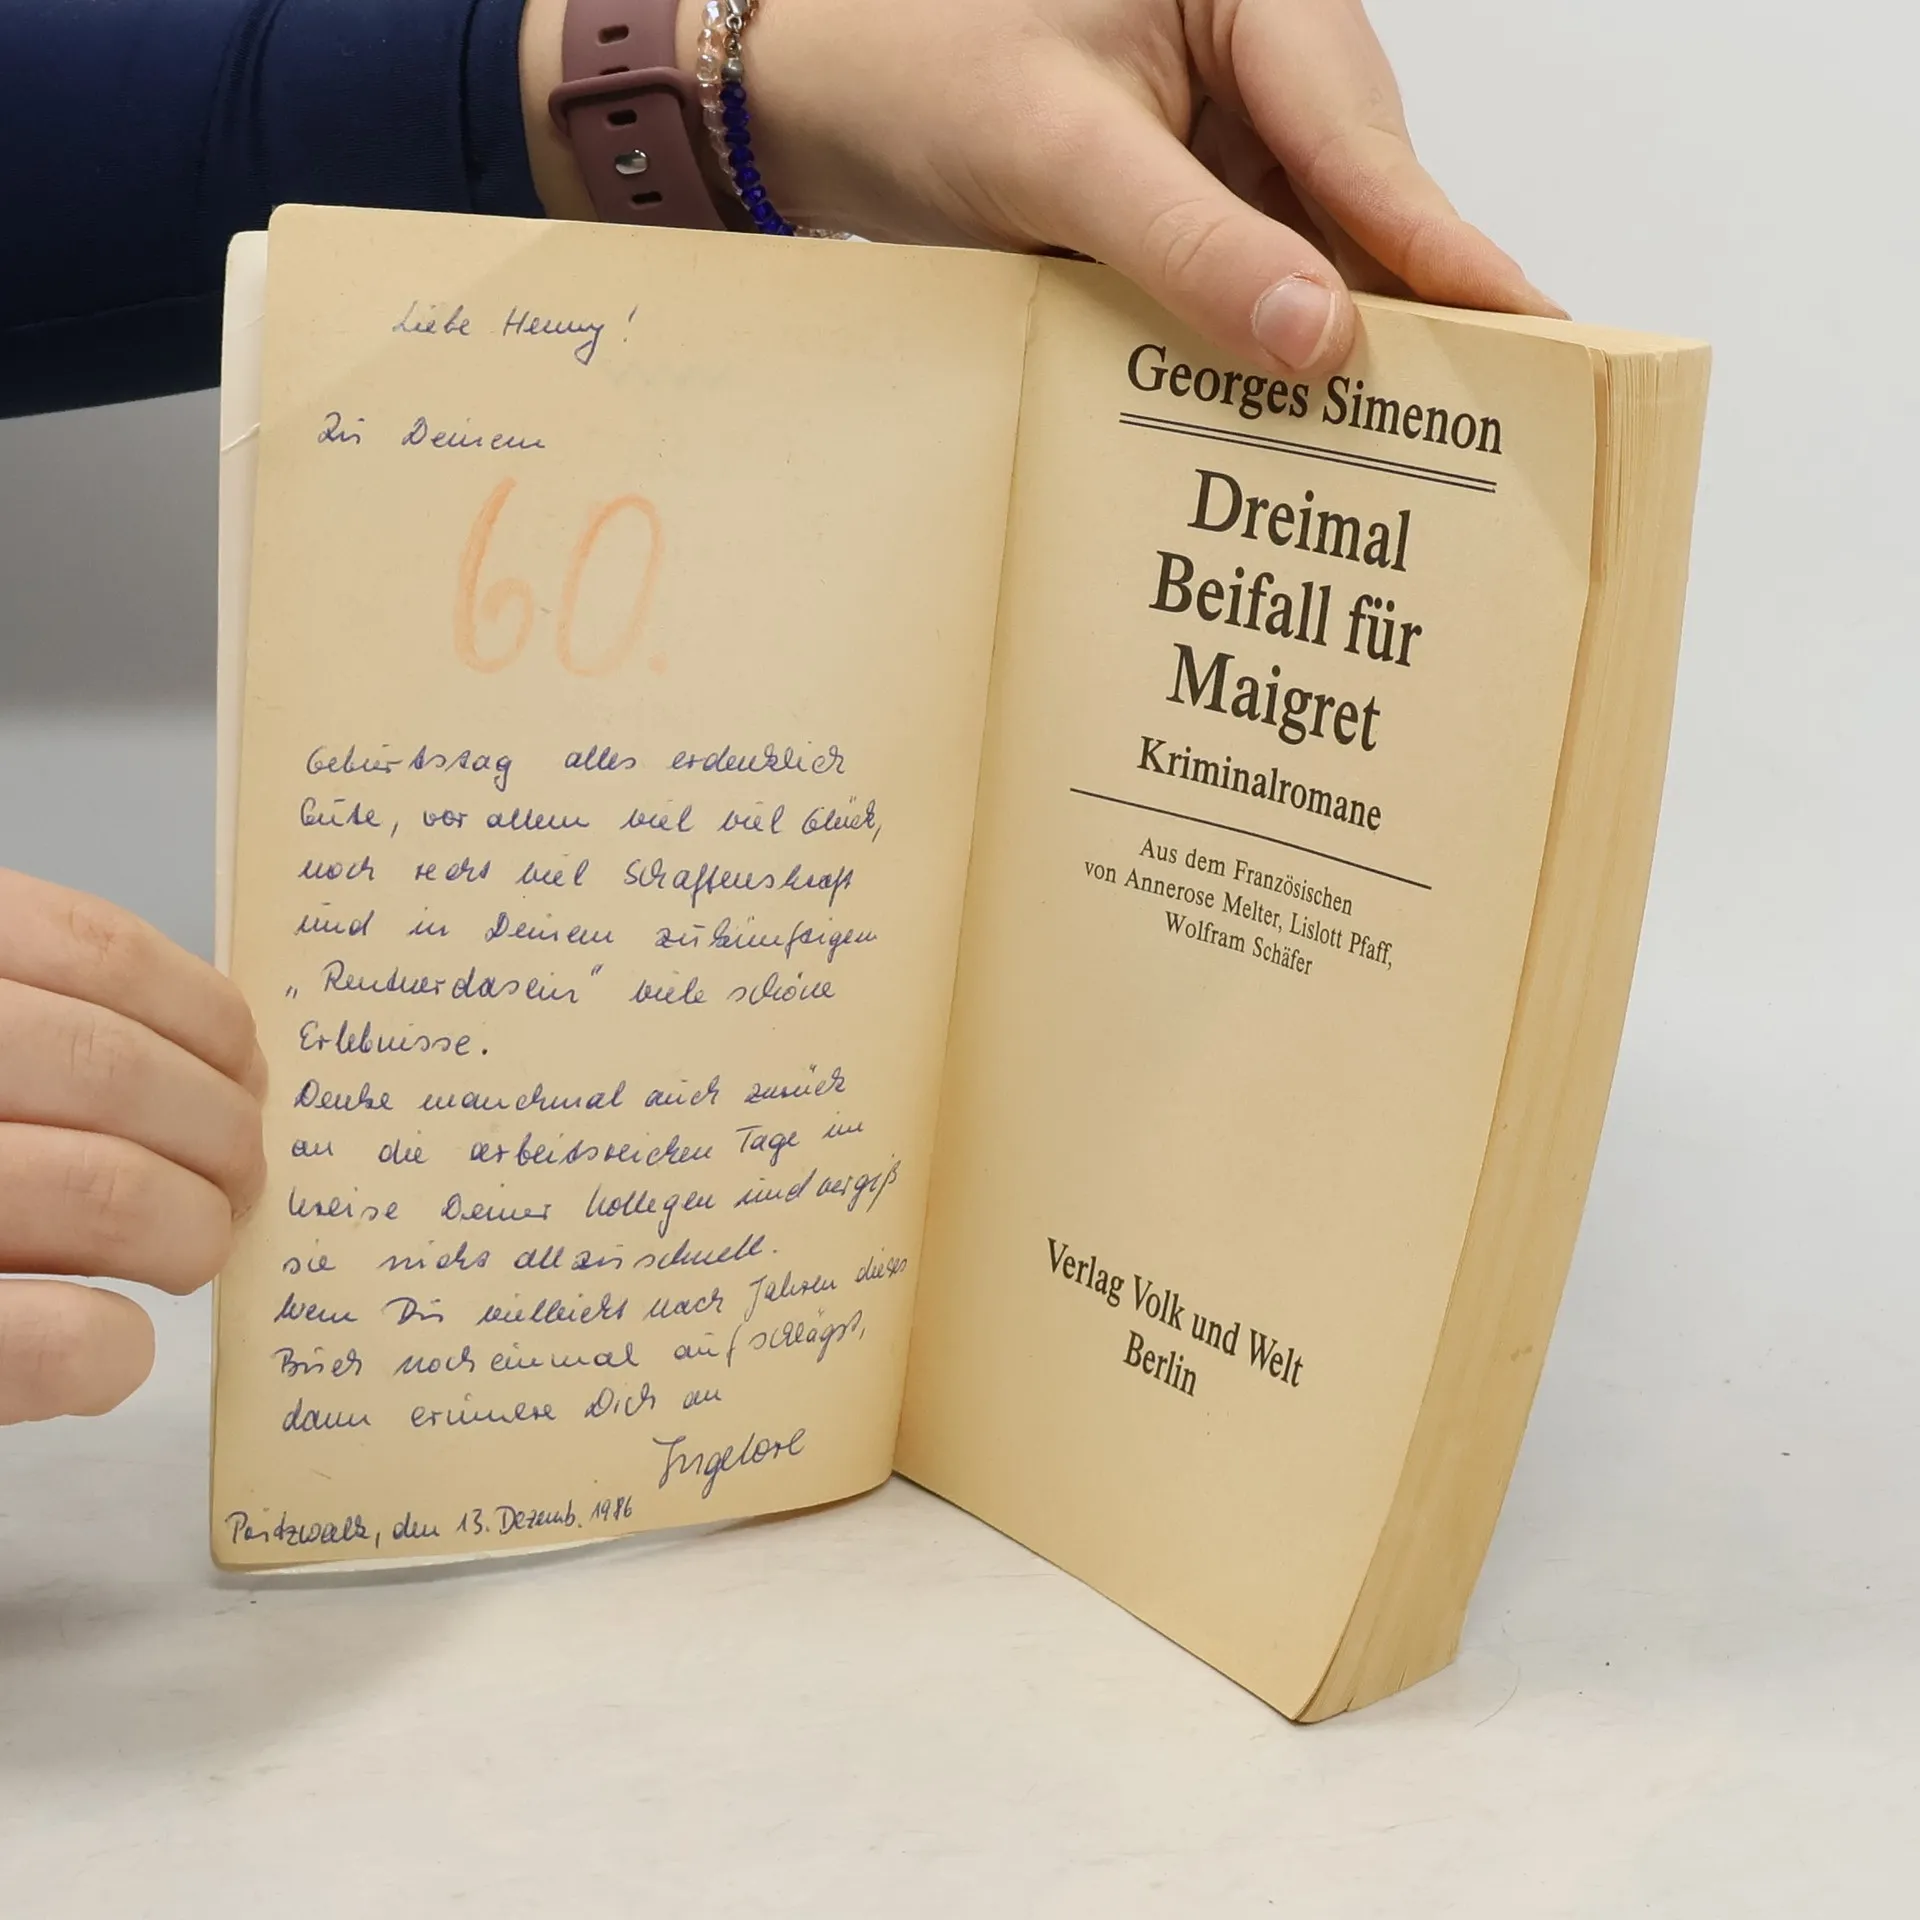 Liebe Henny!
Zu Deinem
60.
Geburtstag alles erdenklich
Gute, vor allem viel viel Glück,
noch recht viel Schaffenskraft
und in Deinem zukünftigen
„Rentnerdasein" viele schöne
Erlebnisse.
Denke manchmal auch zurück
an die arbeitsreichen Tage im
Kreise Deiner Kollegen und vergiß
sie nicht allzu schnell.
Wenn Du vielleicht nach Jahren dieses
Buch noch einmal aufschlägst,
dann erinnere Dich an
Ingelore
Pritzwalk, den 13. Dezemb. 1986
Georges Simenon
Dreimal
Beifall für
Maigret
Kriminalromane
Aus dem Französischen
von Annerose Melter, Lislott Pfaff,
Wolfram Schäfer
Verlag Volk und Welt
Berlin